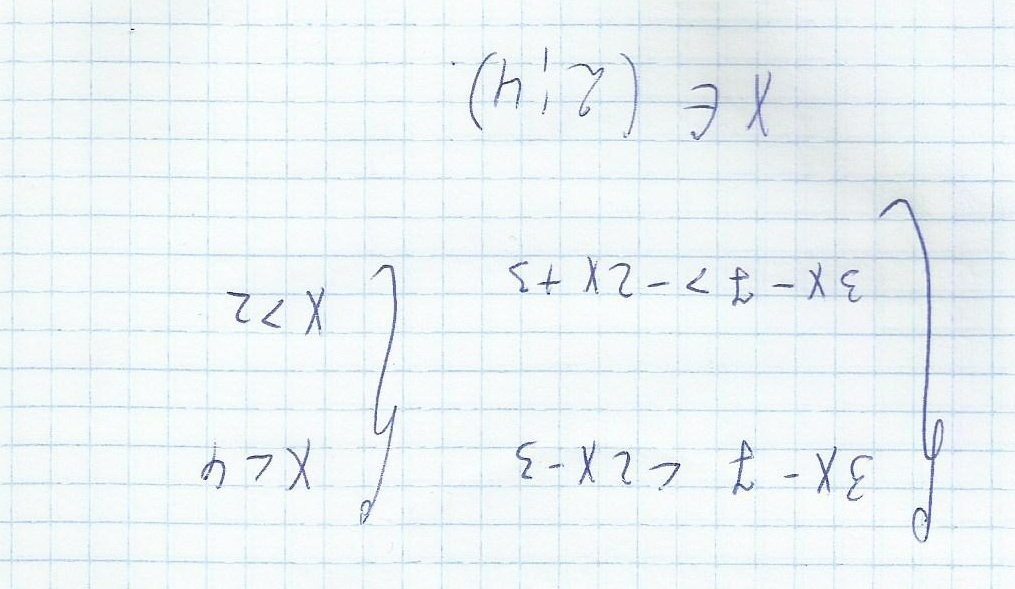 3x - 7 < 2x - 3 x < 4
3x - 7 > -2x + 3 x > 2
x ∈ (2; 4).